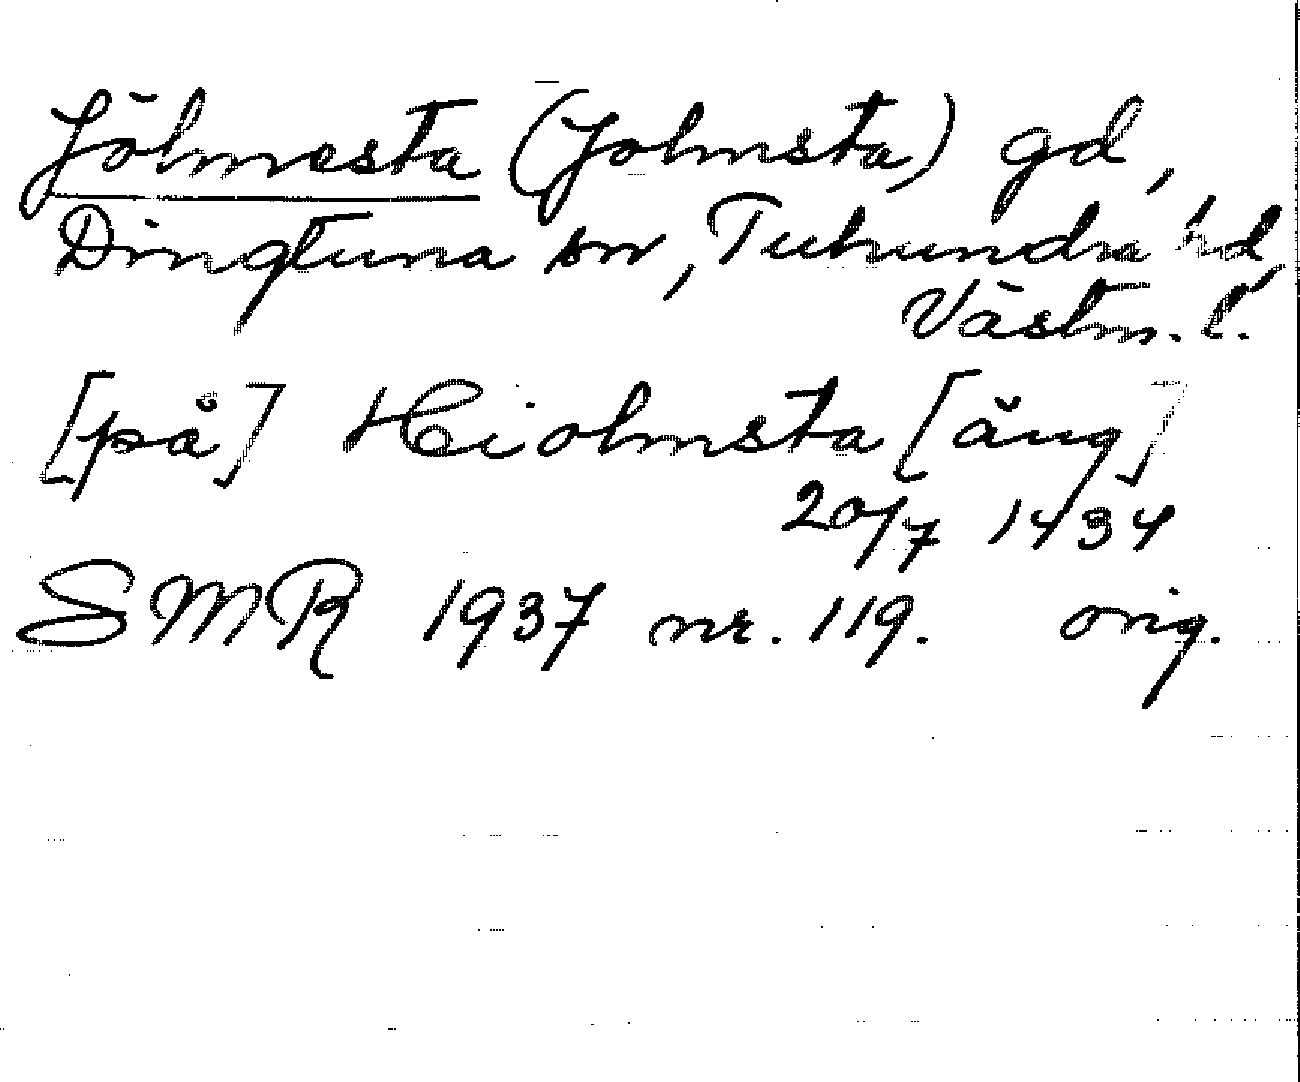 Jölmesta (Jolmsta) gd,
Dingtuna sn, Tuhundra hd,
Västm. l.
[på] Hiolmsta [äng]
20/7 1434
SMR 1937 nr. 119. orig.